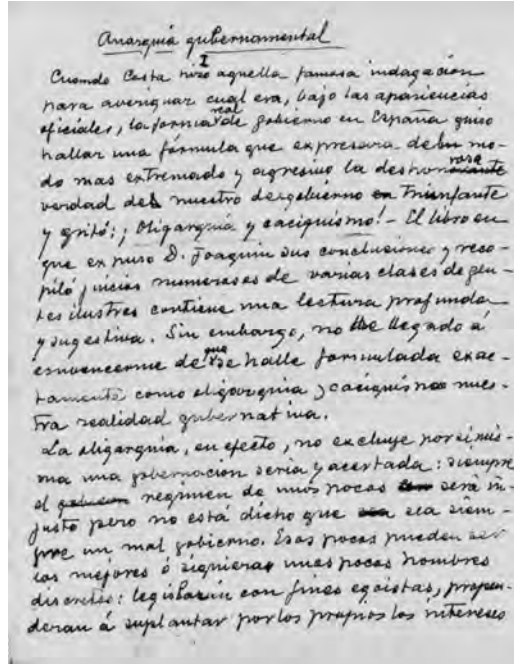 Anarquía gubernamental
I
Cuando Costa hizo aquella famosa indagación
para averiguar cual era, bajo las apariencias
oficiales, la forma real de gobierno en España quiso
hallar una fórmula que expresara de un mo-
do mas extremado y agresivo la deshonrosa
verdad de nuestro desgobierno triunfante
y gritó: ¡Oligarquía y caciquismo! - El libro en
que expuso D. Joaquin sus conclusiones y reco-
piló juicios numerosos de varias clases de gen-
tes ilustres contiene una lectura profunda
y sugestiva. Sin embargo, no he llegado á
convencerme de que se halle formulada exac-
tamente como oligarquia y caciquismo nues-
tra realidad gubernativa.
La oligarquía, en efecto, no excluye por si mis-
ma una gobernacion seria y acertada: siempre
el regimen de unos pocos será in-
justo pero no está dicho que sea siem-
pre un mal gobierno. Esos pocos pueden ser
los mejores ó siquiera unos pocos hombres
discretos: legislarán con fines egoistas, propen-
deran á suplantar por los propios los intereses